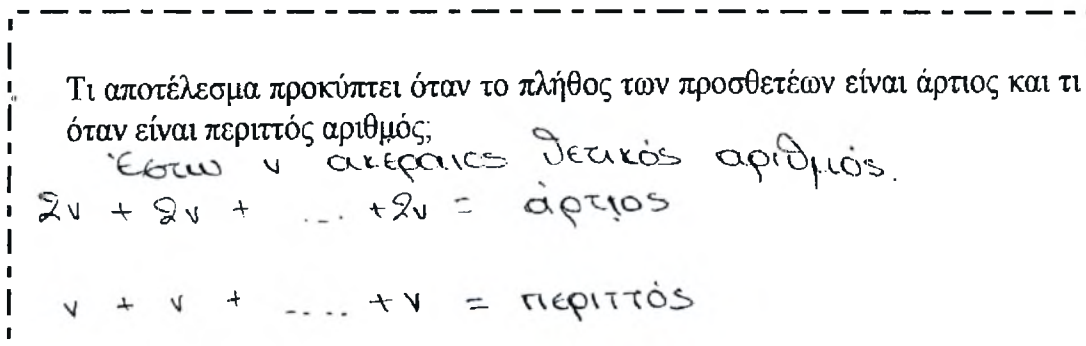 Τι αποτέλεσμα προκύπτει όταν το πλήθος των προσθετέων είναι άρτιος και τι
όταν είναι περιττός αριθμός;
Έστω ν ακέραιος θετικός αριθμός.
2ν + 2ν + ... +2ν = άρτιος
ν + ν + .... +ν = περιττός